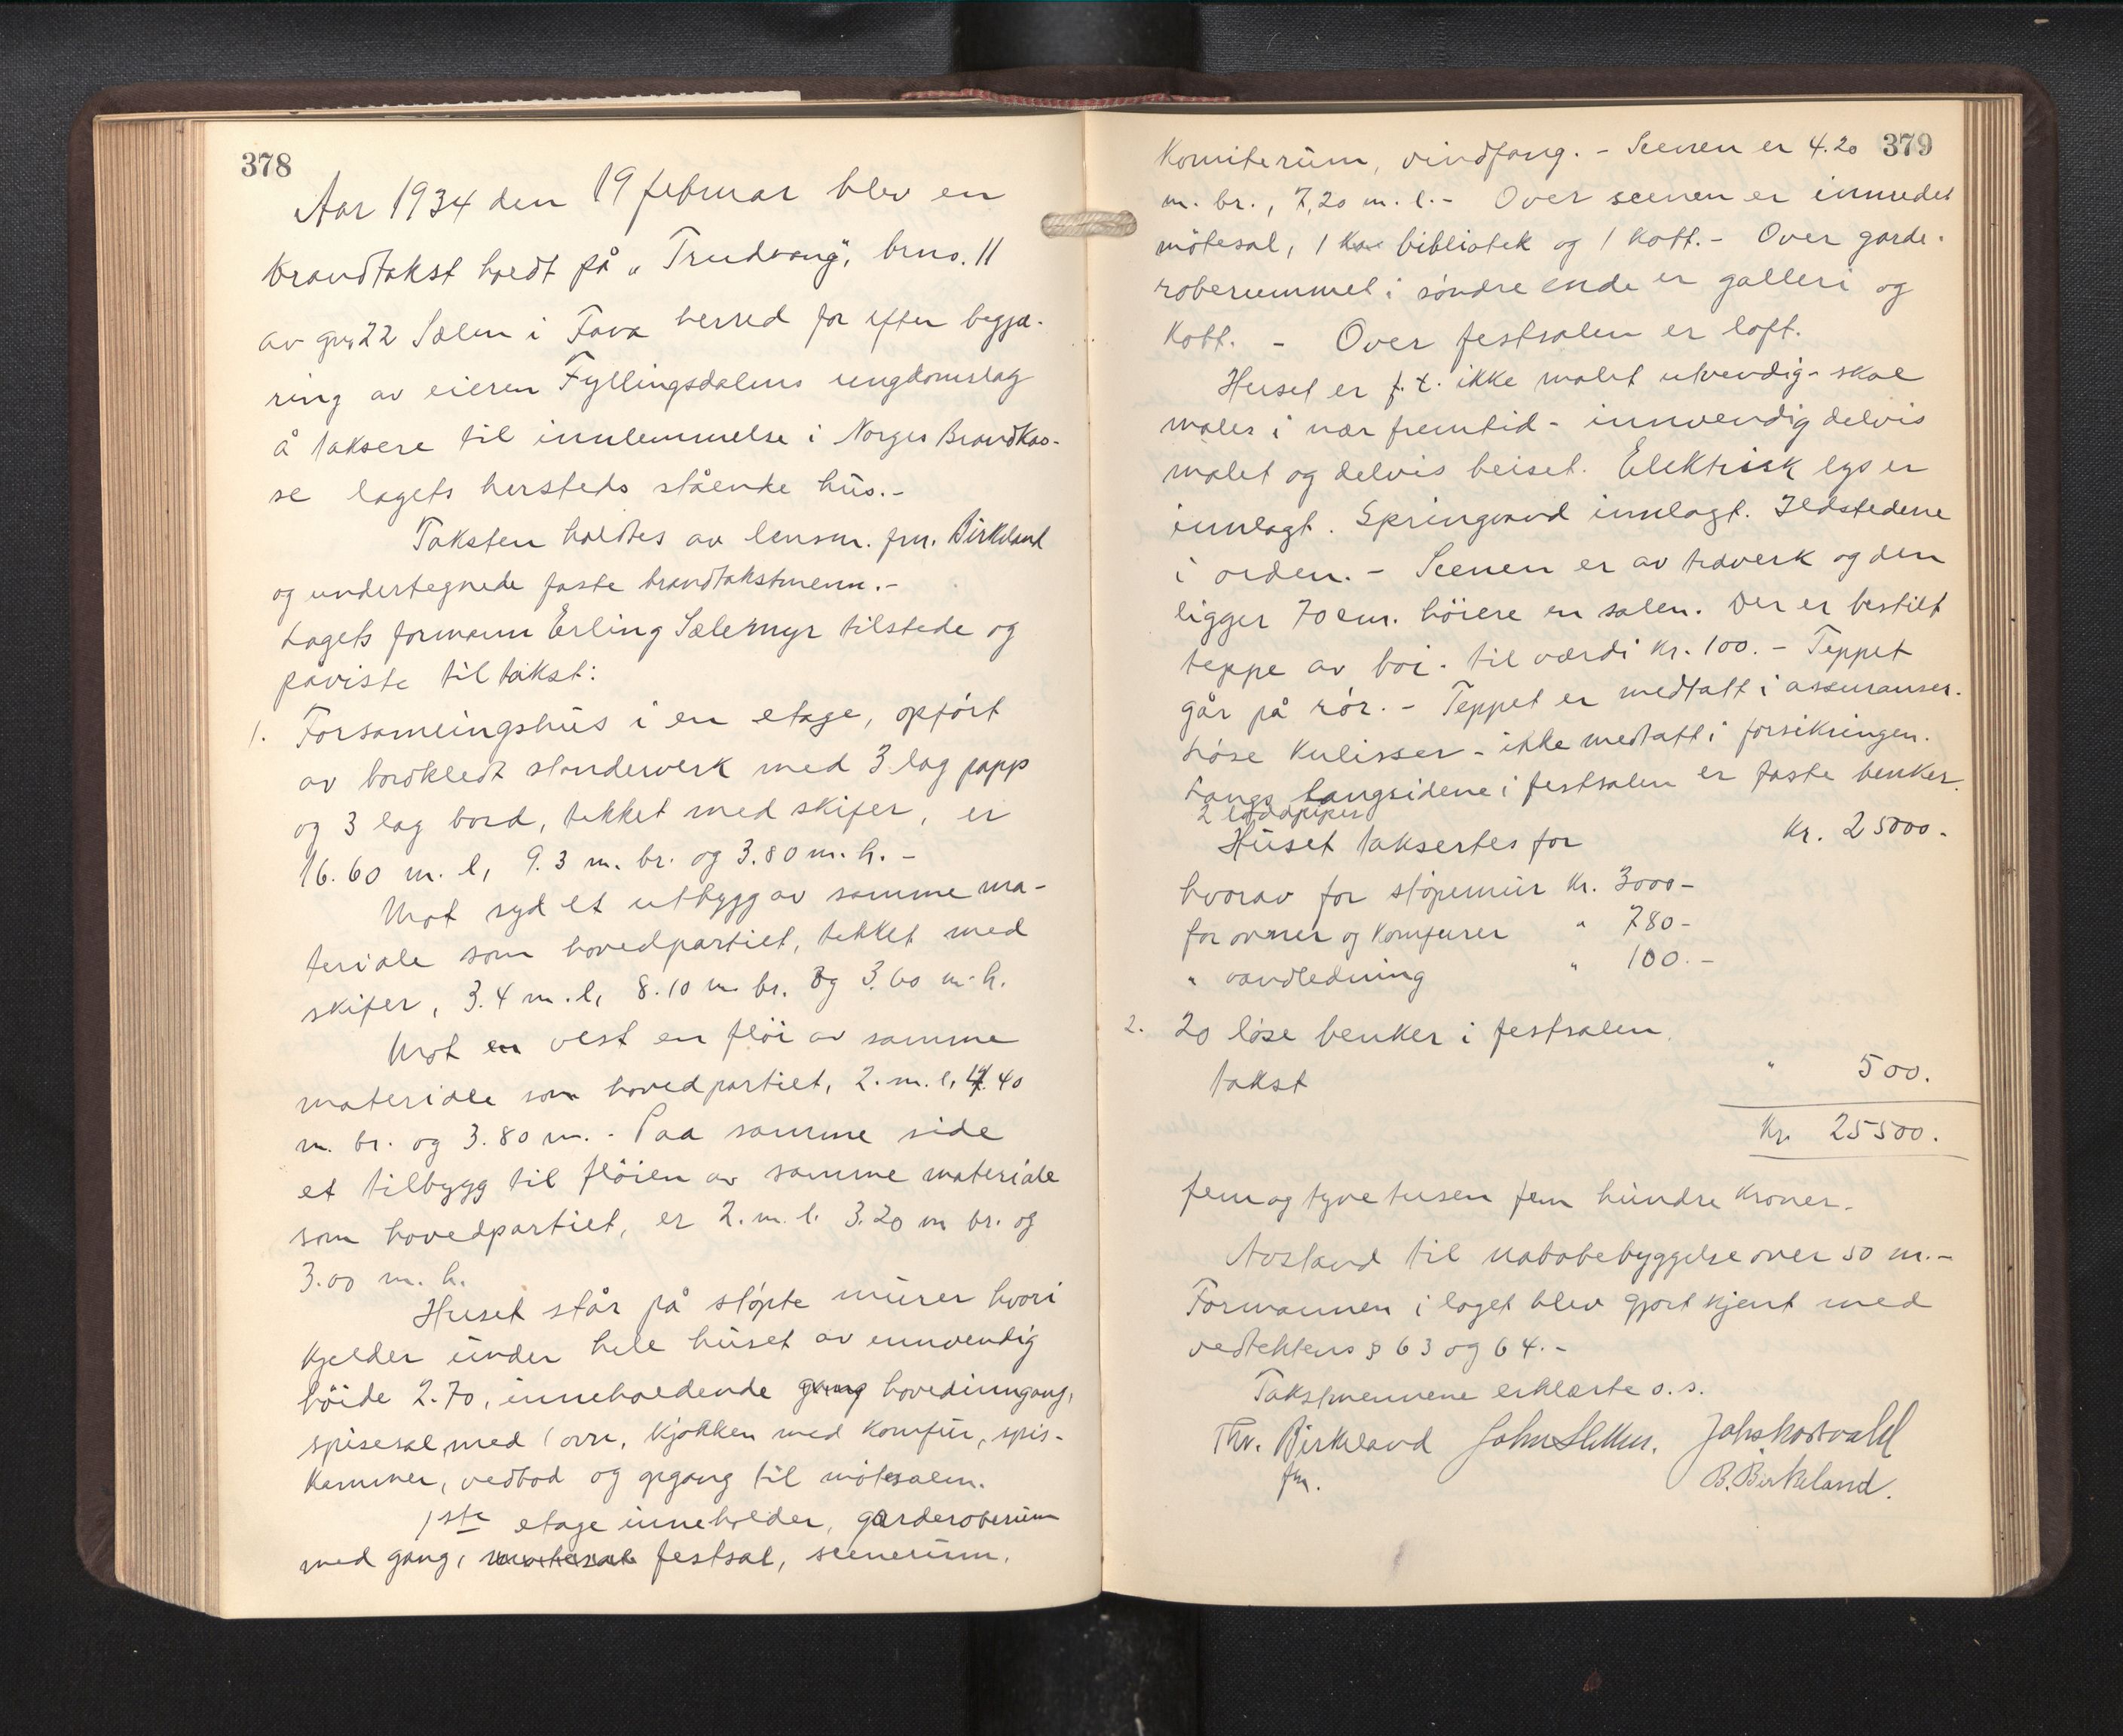 378
Aar 1934 den 19 februar blev en
brandtakst holdt på „Trudvang", brno. 11
av gno 22 Sælen i Fana herred for efter begjæ-
ring av eieren Fyllingsdalens ungdomslag
å taksere til innlemmelse i Norges Brandkas-
se lagets hersteds stående hus.-
Taksten holdtes av lensm. fm. Birkeland
og undertegnede faste brandtakstmenn.-
Lagets formann Erling Sælemyr tilstede og
påviste til takst:
1. Forsamlingshus i en etage, opført
av bordkledt stenderverk med 3 lag papp
og 3 lag bord, tekket med skifer, er
16.60 m. l, 9.3 m. br. og 3.80 m. h. -
Mot syd et utbygg av samme ma-
teriale som hovedpartiet, tekket med
skifer, 3.4 m. l, 8.10 m br. og 3.60 m. h.
Mot en vest en fløi av samme
materiale som hovedpartiet, 2. m. l, 4.40
m. br. og 3.80 m. - Paa samme side
et tilbygg til fløien av samme materiale
som hovedpartiet, er 2. m. l. 3.20 m br. og
3.00 m. h.
Huset står på støpte murer hvori
kjelder under hele huset av innvendig
høide 2.70, inneholdende gang hovedinngang,
spisesal med 1 ovn, kjøkken med komfur, spis-
kammer, vedbod og opgang til møtesalen.
1ste etage inneholder, garderoberum
med gang, møtesal festsal, scenerum,
379
Komiterum, vindfang. - Scenen er 4.20
m. br., 7,20 m. l. - Over scenen er innredet
møtesal, 1 bibliotek og 1 kott. - Over garde-
roberummet i søndre ende er galleri og
kott. - Over festsalen er loft.
Huset er f. t. ikke malet utvendig - skal
males i nær fremtid - innvendig delvis
malet og delvis beiset. Elektrisk lys er
innlagt. Springvand innlagt. Ildstedene
i orden. - Scenen er av treverk og den
ligger 70 cm. høiere en salen. Der er bestilt
teppe av boi. til værdi kr. 100. - Teppet
går på rør. - Teppet er medtatt i assuransen.
Løse kulisser - ikke medtatt i forsikringen.
Langs langsidene i festsalen er faste benker.
2 loddpiper
Huset taksertes for Kr. 25000.
hvorav for støpemur Kr. 3000-
for ovner og komfurer " 780-
" vandledning " 100.-
2. 20 løse benker i festsalen.
takst " 500.
Kr. 25500.
fem og tyve tusen fem hundre kroner.
Avstand til nabobebyggelse over 50 m.-
Formannen i laget blev gjort kjent med
vedtektens § 63 og 64.-
Takstmennene erklærte o. s.
Thv. Birkeland
fm.
B. Birkeland.